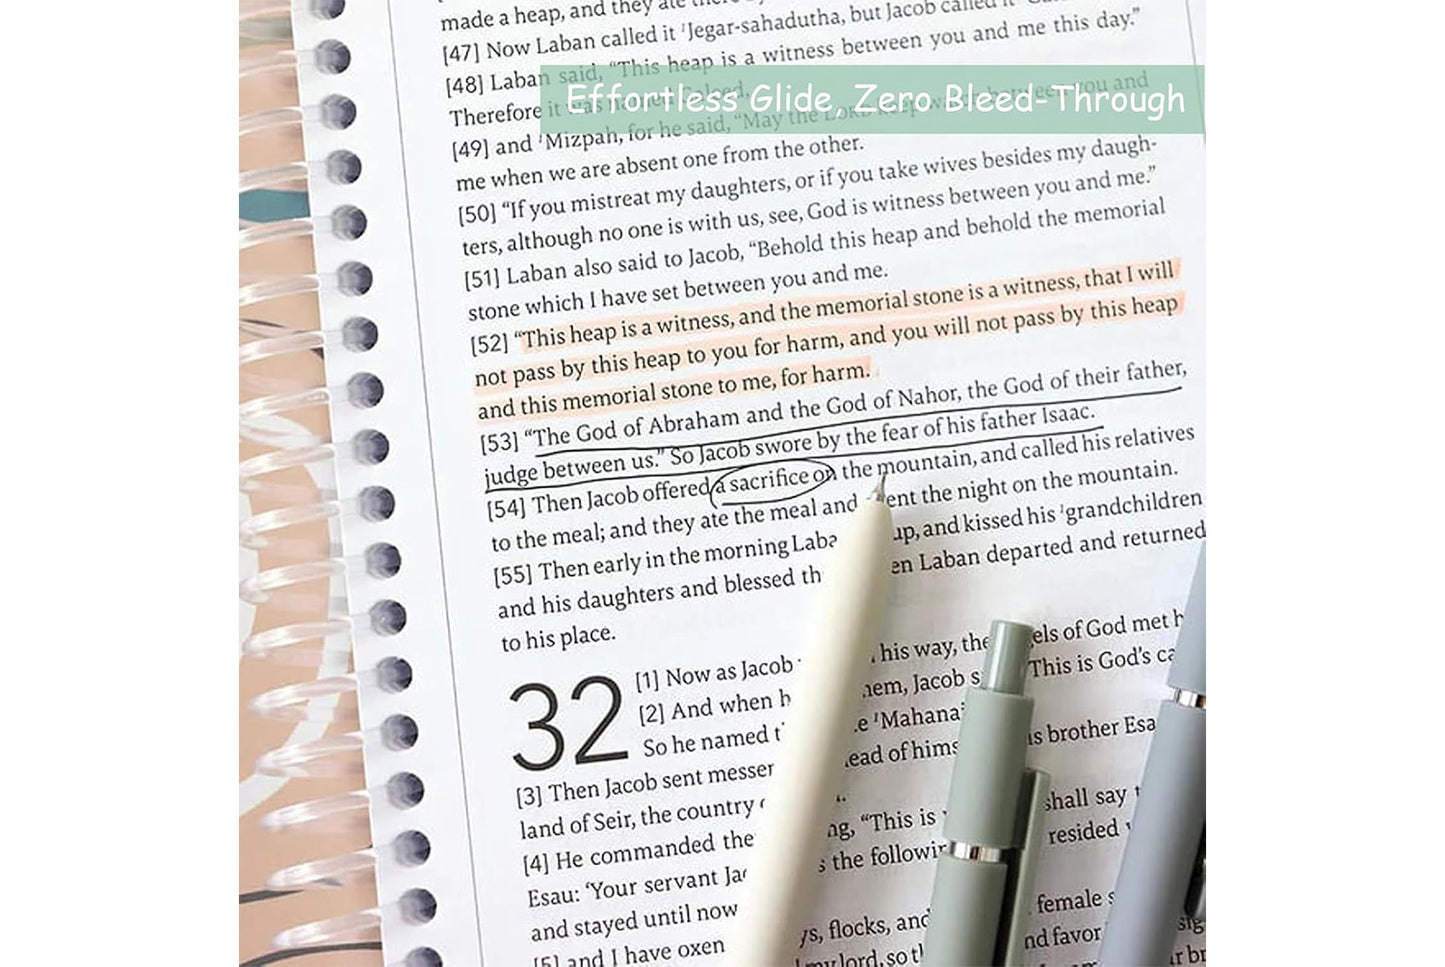 made a heap, and they ate
[47] Now Laban called it ¹Jegar-sahadutha, but Jacob called it
[48] Laban said, “This heap is a witness between you and me this day.”
Effortless Glide, Zero Bleed-Through
Therefore it was named
[49] and ¹Mizpah, for he said, “May the LORD keep between you and
me when we are absent one from the other.
[50] “If you mistreat my daughters, or if you take wives besides my daugh-
ters, although no one is with us, see, God is witness between you and me.”
[51] Laban also said to Jacob, “Behold this heap and behold the memorial
stone which I have set between you and me.
[52] “This heap is a witness, and the memorial stone is a witness, that I will
not pass by this heap to you for harm, and you will not pass by this heap
and this memorial stone to me, for harm.
[53] “The God of Abraham and the God of Nahor, the God of their father,
judge between us.” So Jacob swore by the fear of his father Isaac.
[54] Then Jacob offered a sacrifice on the mountain, and called his relatives
to the meal; and they ate the meal and ent the night on the mountain.
[55] Then early in the morning Laba up, and kissed his ¹grandchildren
and his daughters and blessed th en Laban departed and returned
to his place.
32
[1] Now as Jacob his way, the els of God met h
[2] And when h hem, Jacob s This is God’s ca
So he named t e ¹Mahanai
[3] Then Jacob sent messer ead of hims is brother Esa
land of Seir, the country
[4] He commanded the ng, “This is shall say
Esau: ‘Your servant Jac s the followin resided
and stayed until now
[5] and I have oxen ys, flocks, and female s
my lord, so th nd favor sig